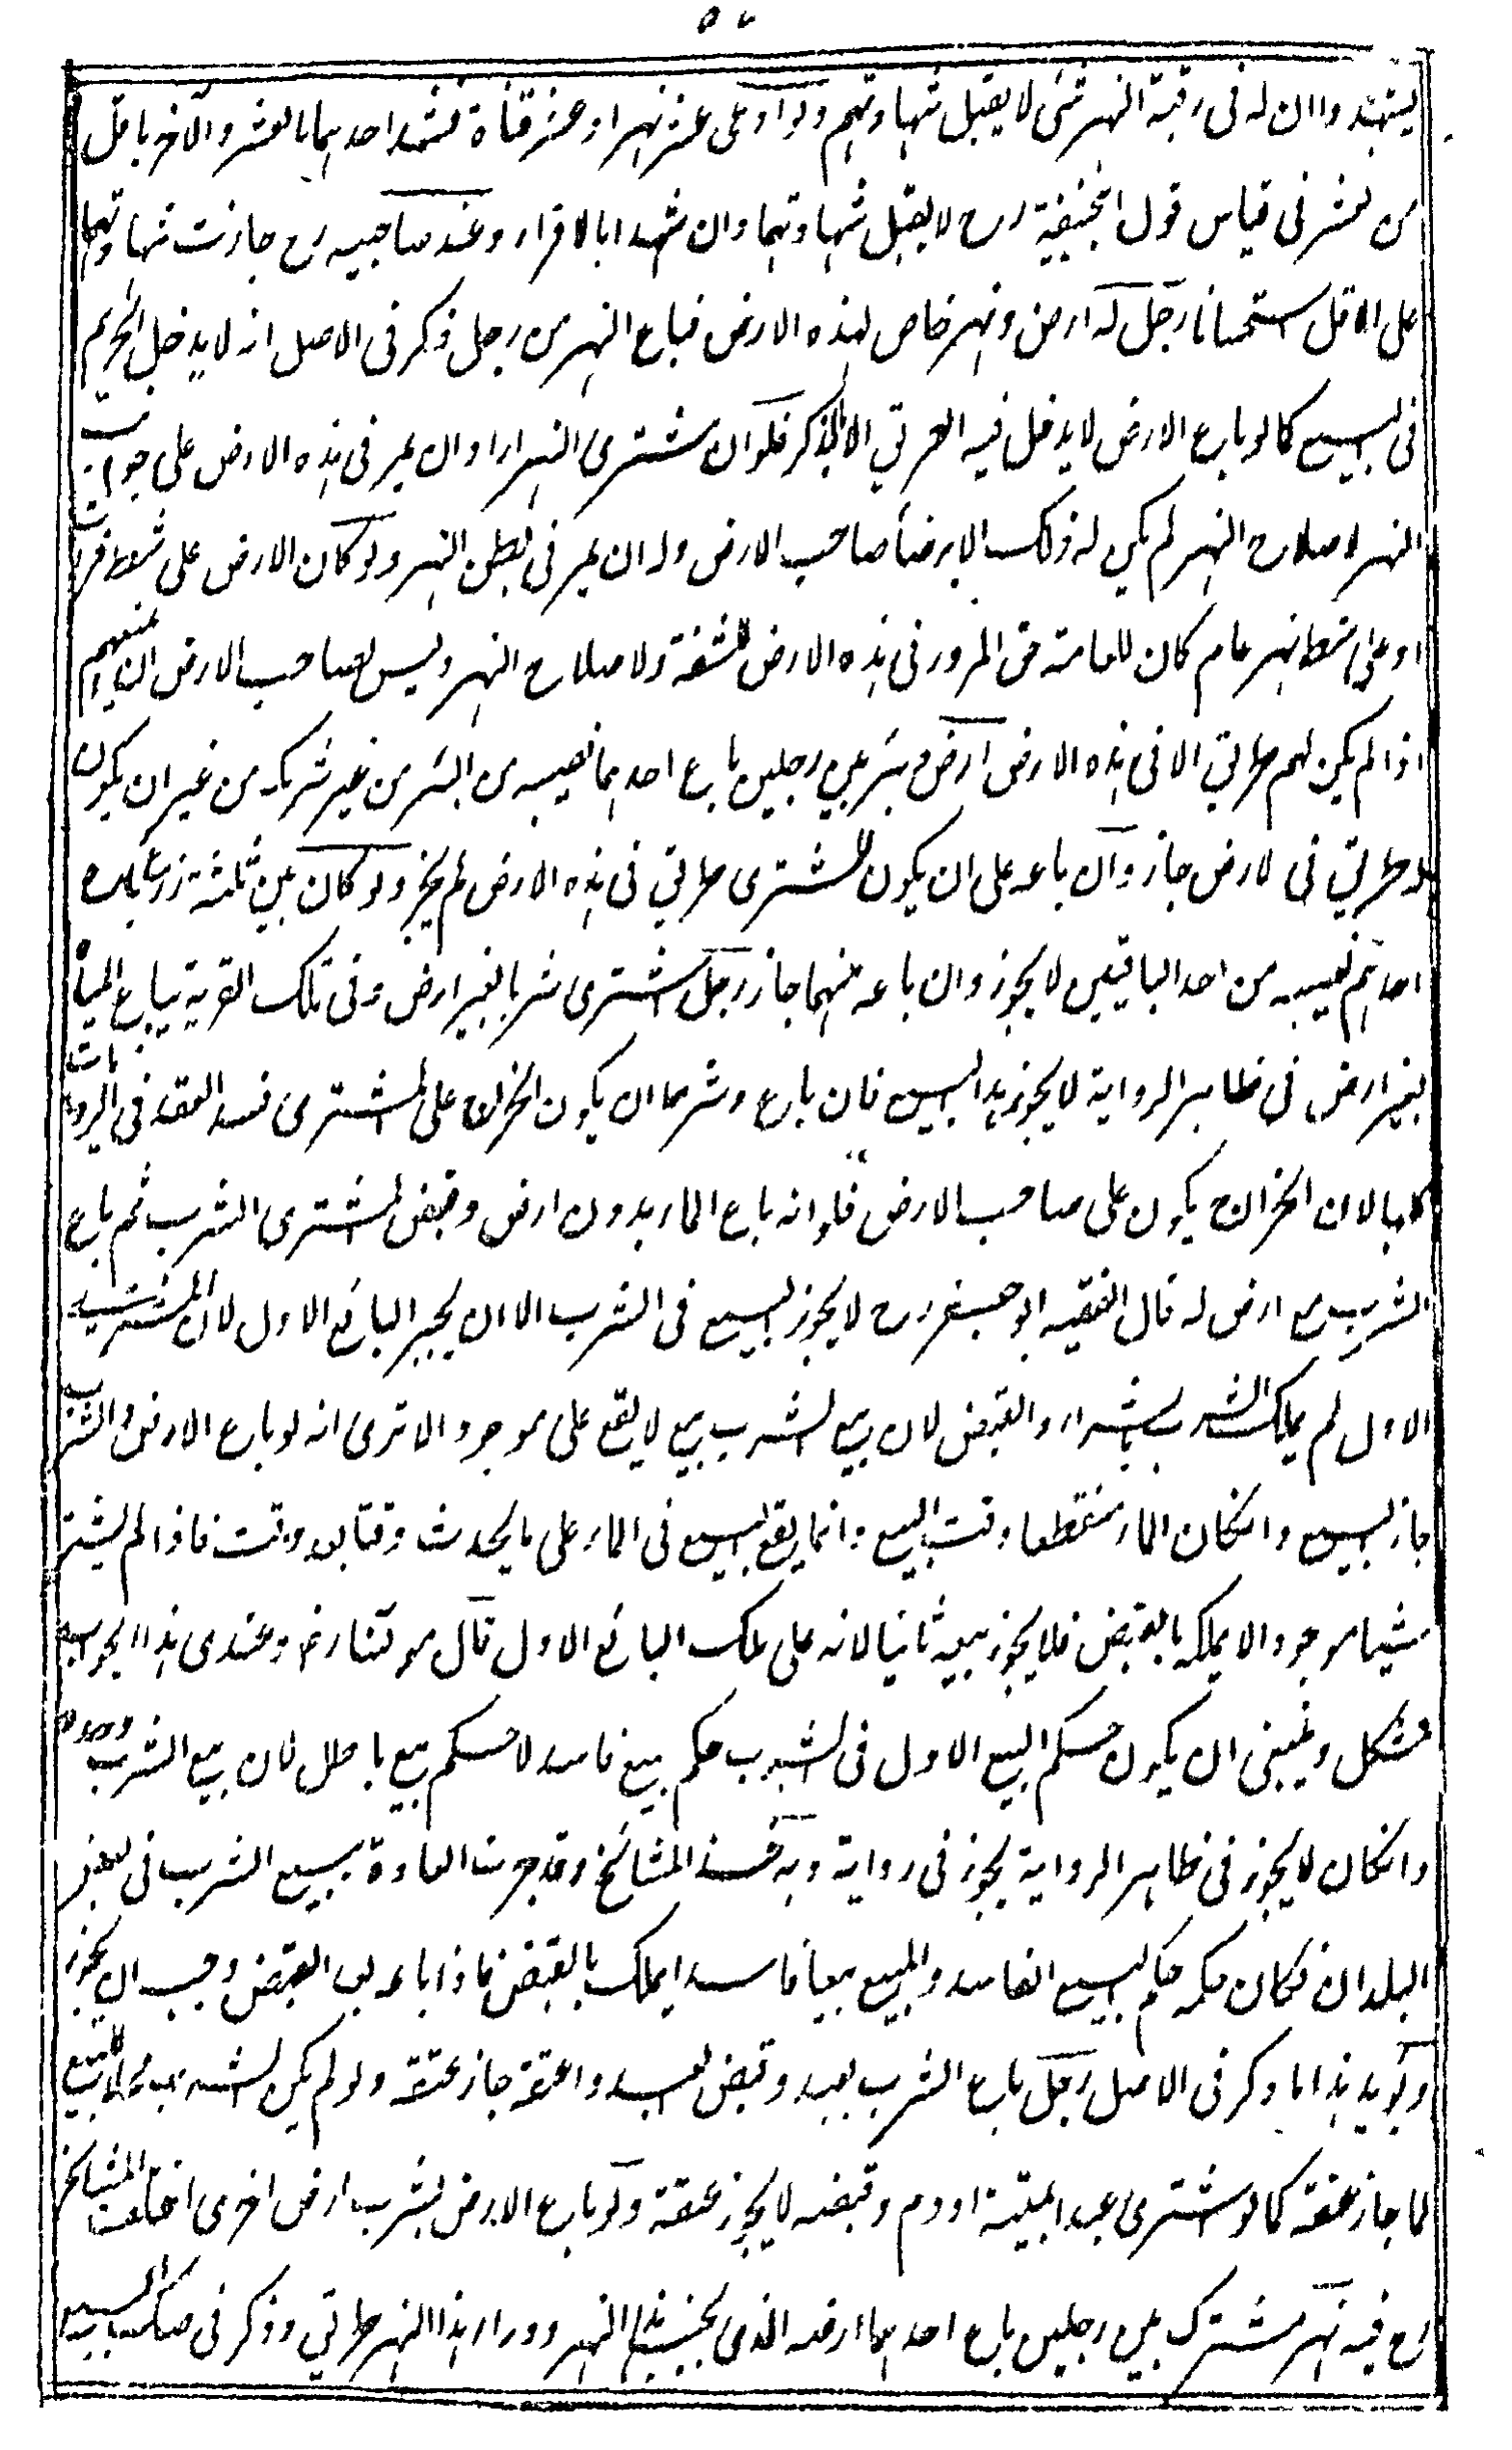 ۵۷
يشهدوا ان له فى رقبة النهر شئ لا يقبل شهادتهم ولو ادعى عشر نهر او عشر قناة فشهد احدهما بالعشر والآخر باقل
من عشر فى قياس قول ابيحنيفة رح لا يقبل شهادتهما وان شهدا بالاقرار وعند صاحبيه رح جازت شهادتهما
على الاقل استحسانا رجل له ارض ونهر خاص لهذه الارض فباع النهر من رجل ذكر فى الاصل انه لا يدخل الحريم
فى البيع كما لو باع الارض لا يدخل فيه الطريق الا بالذكر فلو ان مشترى النهر اراد ان يمر فى هذه الارض على جوانب
النهر لاصلاح النهر لم يكن له ذلك الا برضا صاحب الارض وله ان يمر فى بطن النهر ولو كان الارض على شط فرات
او على شط نهر عام كان للعامة حق المرور فى هذه الارض للشفة ولاصلاح النهر وليس لصاحب الارض ان يمنعهم
اذا لم يكن لهم طريق الا فى هذه الارض ارض وبئر بين رجلين باع احدهما نصيبه من البئر من غير شريكه من غير ان يكون
له طريق فى الارض جاز وان باعه على ان يكون للمشترى طريق فى هذه الارض لم يجز ولو كان بين ثلثة زرع باع
احدهم نصيبه من احد الباقيين لا يجوز وان باعه منهما جاز رجل اشترى شربا بغير ارض وفى تلك القرية يباع المياه
بغير ارض فى ظاهر الرواية لا يجوز هذا البيع فان باع وشرط ان يكون الخراج على المشترى فسد العقد فى الروايات
كلها لان الخراج يكون على صاحب الارض فلو انه باع الماء بدون ارض وقبض المشترى الشرب ثم باع
الشرب مع ارض له قال الفقيه ابو جعفر رح لا يجوز البيع فى الشرب الا ان يجيز البائع الاول لان المشترى
الاول لم يملك الشرب بالشراء والقبض لان بيع الشرب بيع لا يقع على موجود الا ترى انه لو باع الارض والشرب
جاز البيع وانكان الماء منقطعا وقت البيع وانما يقع البيع فى الماء على ما يحدث وقتا بعد وقت فاذا لم يشتر
شيئا موجودا لا يملكه بالقبض فلا يجوز بيعه ثانيا لانه على ملك البائع الاول قال مولانا رض وعندى هذا الجواب
مشكل وينبغى ان يكون حكم البيع الاول فى الشرب حكم بيع فاسد لا حكم بيع باطل لان بيع الشرب وحده
وانكان لا يجوز فى ظاهر الرواية يجوز فى رواية وبه اخذ المشائخ وقد جرت العادة ببيع الشرب فى بعض
البلدان فكان حكمه حكم البيع الفاسد والمبيع بيعا فاسدا يملك بالقبض فاذا باعه بعد القبض وجب ان يجوز
ويؤيد هذا ما ذكر فى الاصل رجل باع الشرب بعبد وقبض العبد واعتقه جاز عتقه ولو لم يكن الشرب محلا للبيع
لما جاز عتقه كما لو اشترى عبدا بميتة او دم وقبضه لا يجوز عتقه ولو باع الارض بشرب ارض اخرى اختلف المشائخ
رح فيه نهر مشترك بين رجلين باع احدهما ارضه الذى بجنب هذا النهر ووراء هذا النهر طريق وذكر فى صك البيع